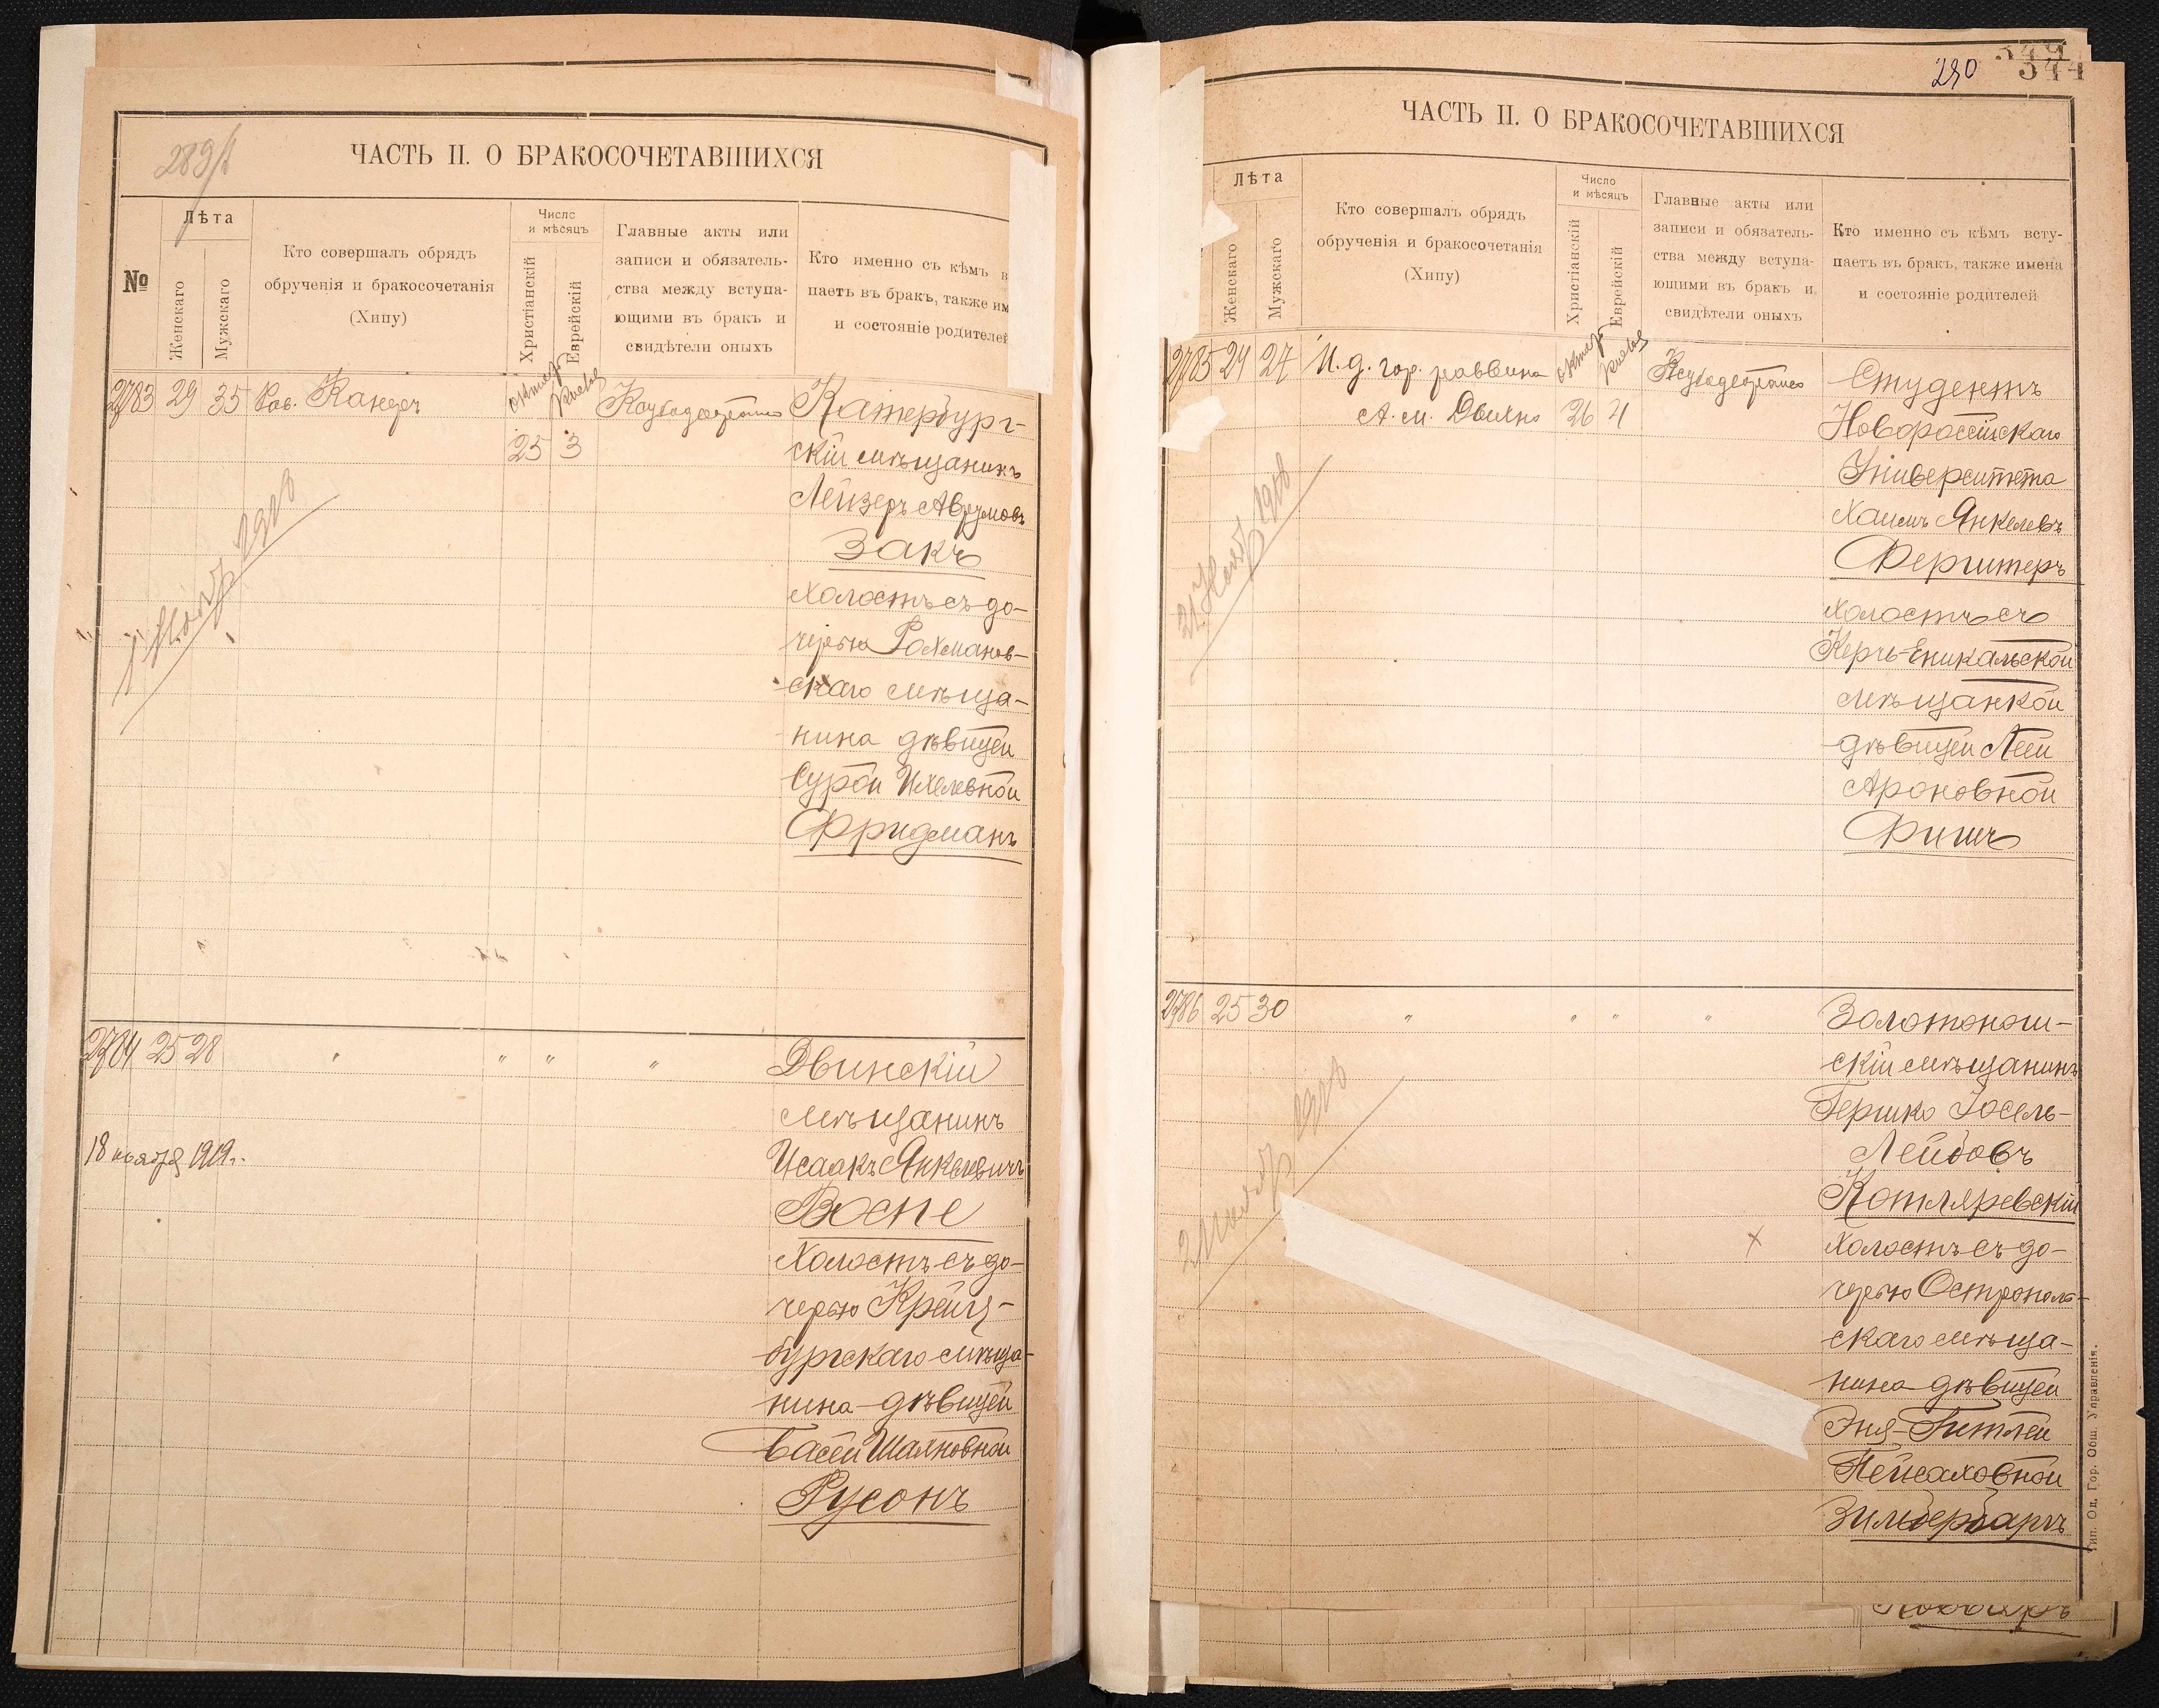 289/2
ЧАСТЬ II. О БРАКОСОЧЕТАВШИХСЯ
№
Лѣта
Женскаго
Мужскаго
Кто совершалъ обрядъ
обрученія и бракосочетанія
(Хипу)
Число
и мѣсяцъ
Христіанскій
Еврейскій
Главные акты или
записи и обязатель-
ства между вступа-
ющими въ бракъ и
свидѣтели оныхъ
Кто именно съ кѣмъ в
паетъ въ бракъ, также им
и состояніе родителей
2783 29 35 Рав.
25 3
Катербург-
скій мѣщанинъ
Лейзеръ Аврумовъ
Закъ
холостъ съ до-
черью Рахманов-
скаго мѣща-
нина дѣвицей
Сурой Ихелевной
Фридманъ
2784 25 28 " " " "
Двинскій
мѣщанинъ
18 ноября 1919 г.
Исаакъ Янкелевичъ
Воспе
холостъ съ до-
черью Крейц-
бургскаго мѣща-
нина дѣвицей
Басей Шаяновной
Русонъ
290 344
ЧАСТЬ II. О БРАКОСОЧЕТАВШИХСЯ
Лѣта
Женскаго
Мужскаго
Кто совершалъ обрядъ
обрученія и бракосочетанія
(Хипу)
Число
и мѣсяцъ
Христіанскій
Еврейскій
Главные акты или
записи и обязатель-
ства между вступа-
ющими въ бракъ и
свидѣтели оныхъ
Кто именно съ кѣмъ всту-
паетъ въ бракъ, также имена
и состояніе родителей
2785 24 27 И. д. гор. раввина
А. М. 26 4
Студентъ
Новороссійскаго
Университета
Хаимъ Янкелевъ
Фергшперъ
холостъ съ
Керчь-Еникальской
мѣщанкой
дѣвицей Леей
Ароновной
Фишъ
2786 25 30 " " " "
Золотонош-
скій мѣщанинъ
Гершко Іосель-
Лейбовъ
Котляревскій
холостъ съ до-
черью Остропольскаго мѣща-
нина дѣвицей
Эня-Гитлей
Пейсаховной
Зильбербаргъ
Тип. Од. Гор. Общ. Управленія.